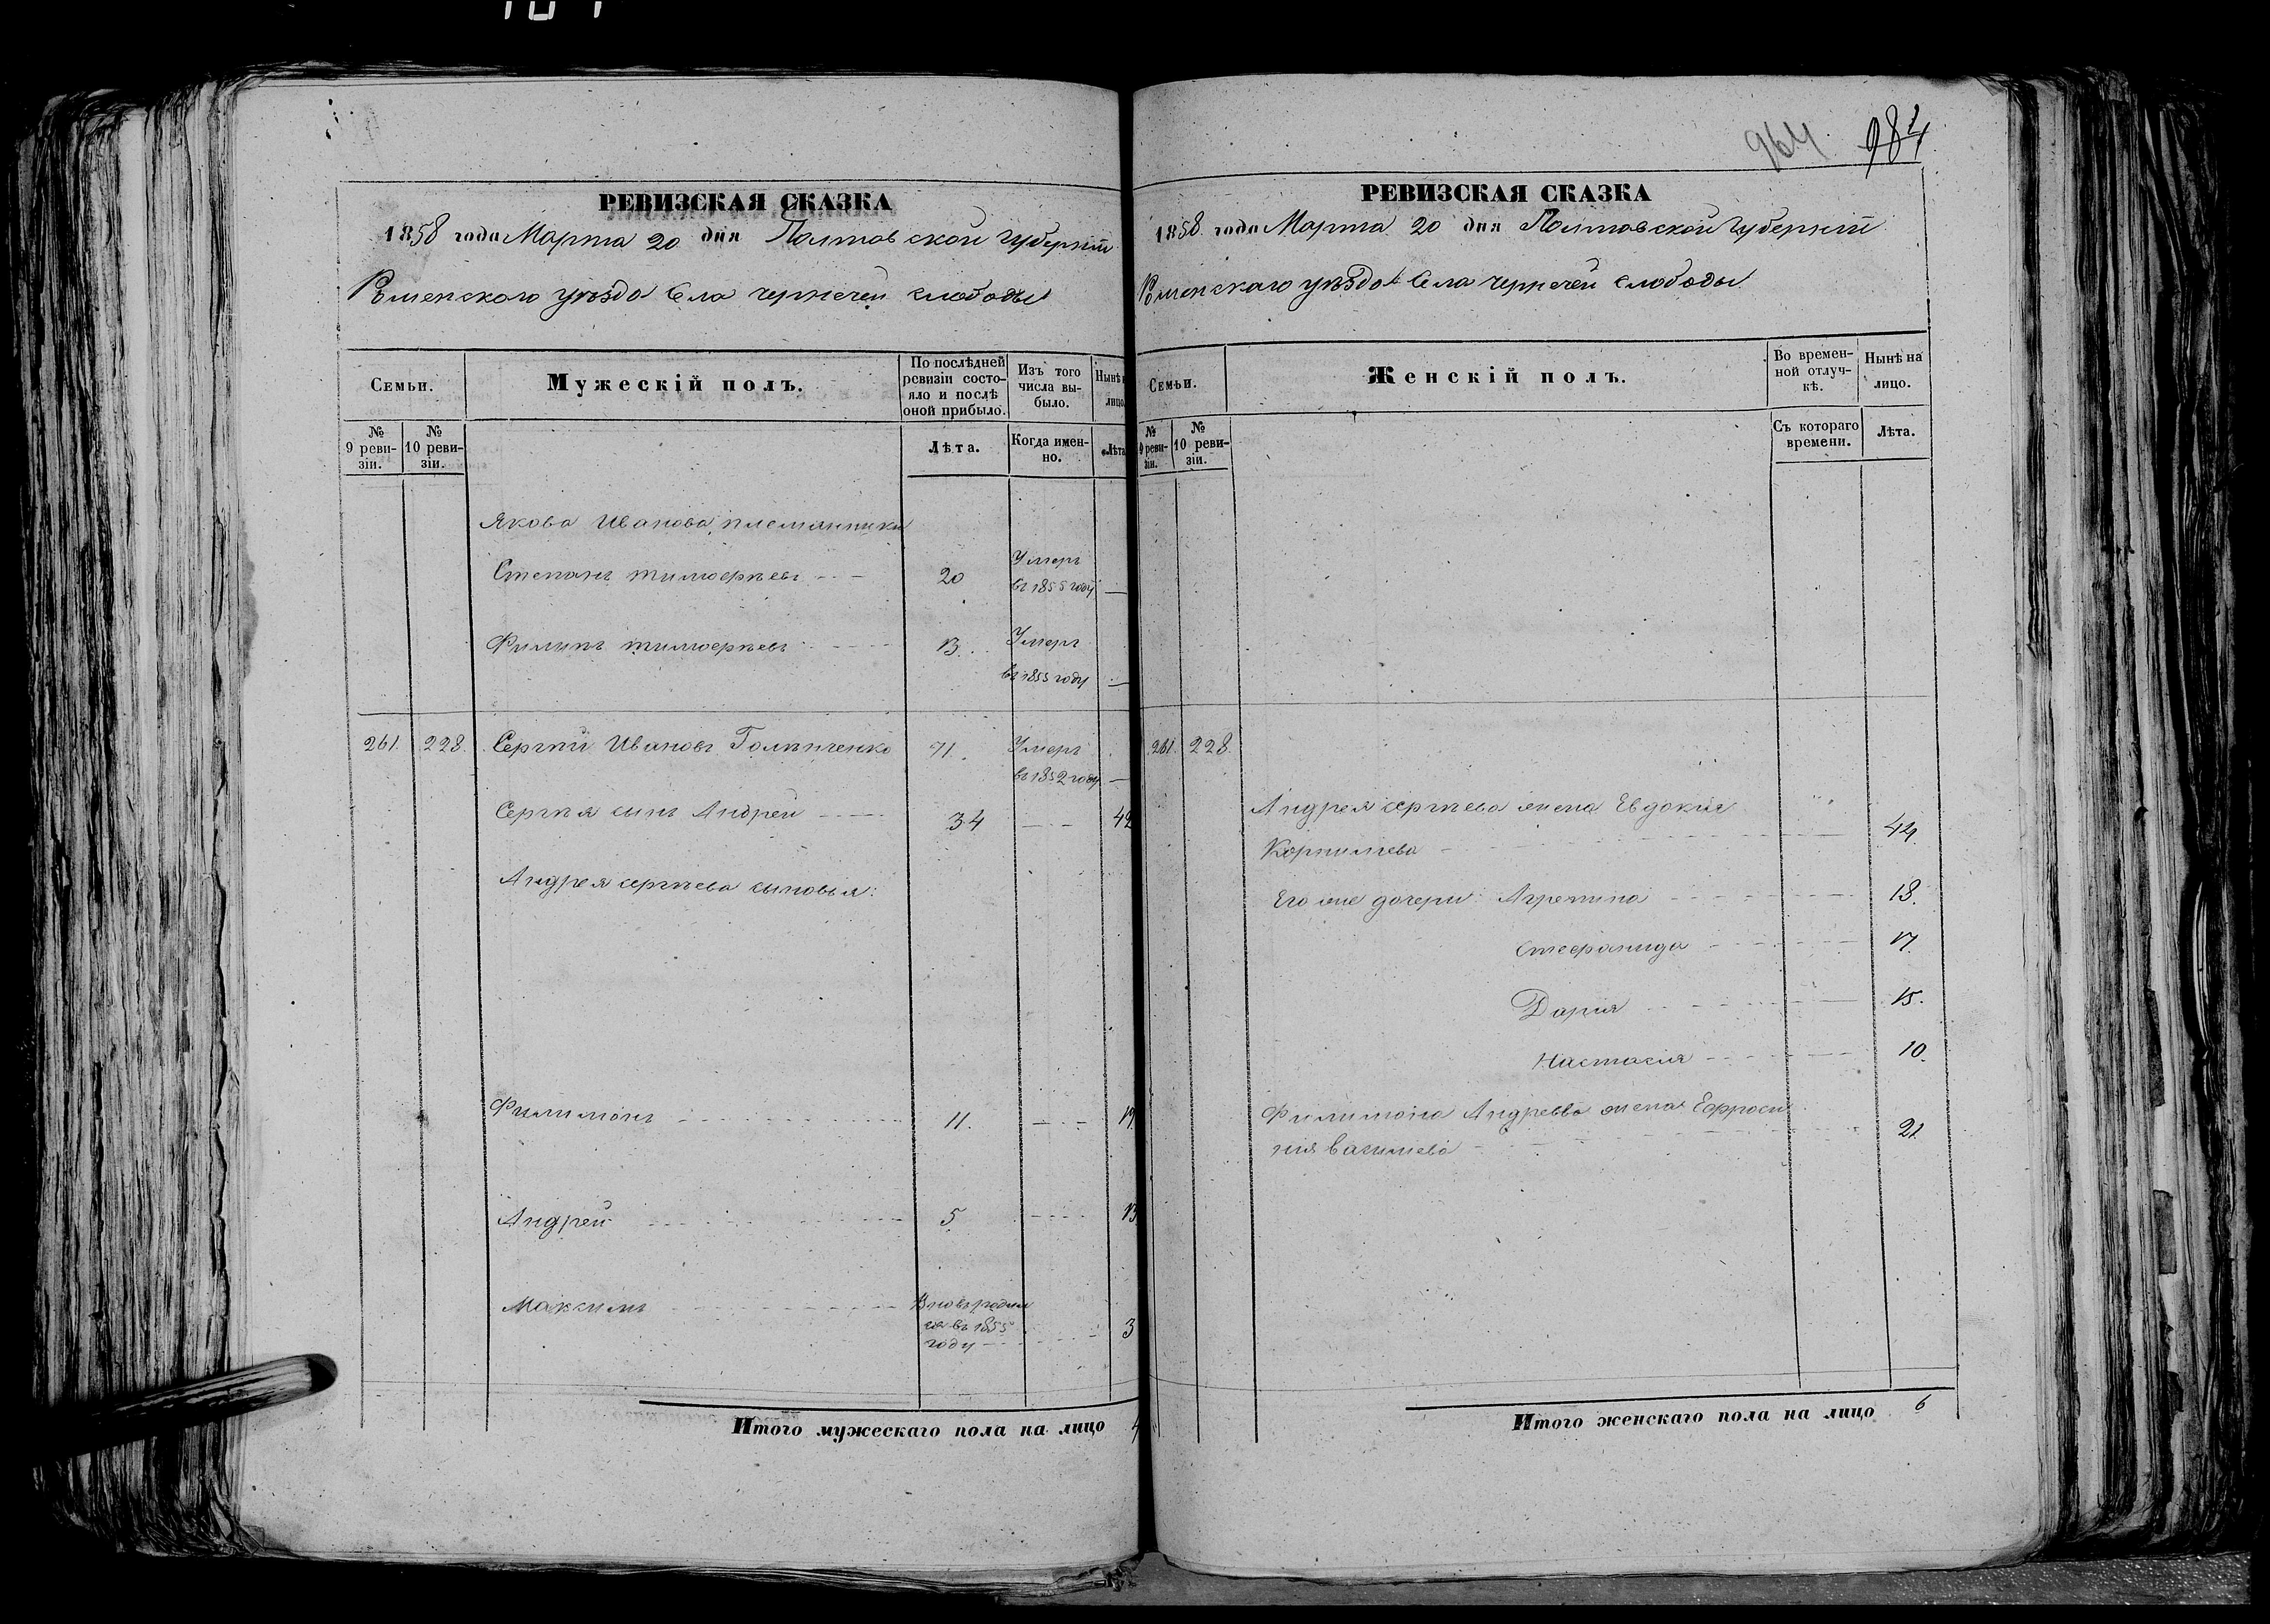 964 984
РЕВИЗСКАЯ СКАЗКА
1858 года Марта 20 дня Полтавской Губерніи
Роменского уѣзда Села чернечей слободы
Семьи.
Мужескій полъ.
По послѣдней ревизіи состояло и послѣ оной прибыло.
Изъ того числа выбыло.
Нынѣ на лицо.
№ 9 ревизіи.
№ 10 ревизіи.
Лѣта.
Когда именно.
Лѣта
Якова Иванова племянники
Степанъ тимоѳеевъ 20 Умеръ въ 1855 году —
Филипъ тимоѳеевъ 13. Умеръ въ 1855 году —
261. 228. Сергѣй Ивановъ 71. Умеръ въ 1852 году —
Сергѣя сынъ Андрей 34 — 42
Андрея сергѣева сыновья:
Филимонъ 11. — 19
Андрей 5. — 13
Максимъ Вновь родился въ 1855 году — 3
Итого мужескаго пола на лицо 4
РЕВИЗСКАЯ СКАЗКА
1858 года Марта 20 дня Полтавской Губерніи
Роменскаго уѣзда Села чернечей слободы
Семьи.
Женскій полъ.
Во временной отлучкѣ.
Нынѣ на лицо.
№ 9 ревизіи.
№ 10 ревизіи.
Съ котораго времени.
Лѣта.
261. 228.
Андрея сергѣева жена Евдокия
Корнилиева 44.
Его же дочери: Агрепина 18.
Стефанида 17.
Дария 15.
Настасия 10.
Филимона Андреева жена Ефроси
ния василиева 21
Итого женскаго пола на лицо 6